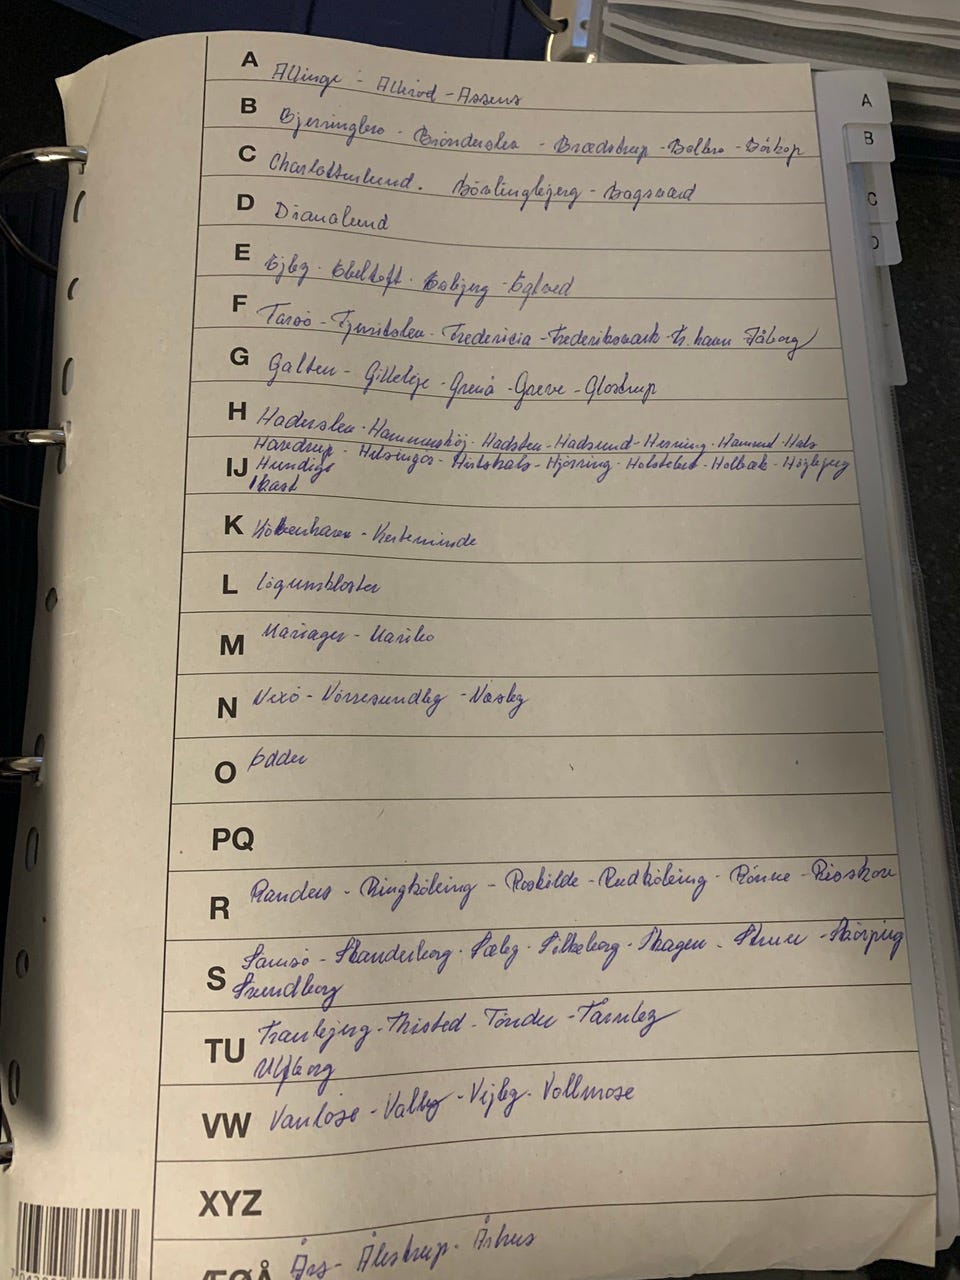 A Allinge - Alleröd - Assens
A
B Bjerringbro - Brönderslev - Brædstrup - Balbro - Börkop
B
C Charlottenlund. Bövlingbjerg - Bagsværd
C
D Dianalund
D
E Ejby. Ebeltoft. Esbjerg - Egtved
F Farsö - Fjerritslev - Fredericia - Frederiksværk - Fr.havn Fåborg
G Galten - Gilleleje - Grenå - Greve - Glostrup
H Haderslev - Hammershöj - Hadsten - Hadsund - Herning - Hammel - Hals
Havdrup - Helsingör - Hirtshals - Hjörring - Holstebro - Holbæk - Höjbjerg
IJ Hundige
Ikast
K København - Kerteminde
L Lögumkloster
M Mariager - Maribo
N Nexö - Nörresundby - Næsby
O Odder
PQ
R Randers - Ringköbing - Roskilde - Rudköbing - Rönne - Risskov
S Samsö - Skanderborg - Sæby - Silkeborg - Skagen - Struer - Skörping
Svendborg
TU Tranbjerg - Thisted - Tönder - Tarnby
Ulfborg
VW Vanlöse - Valby - Vejby - Vollmose
XYZ
ÆØÅ Års - Ålestrup - Århus